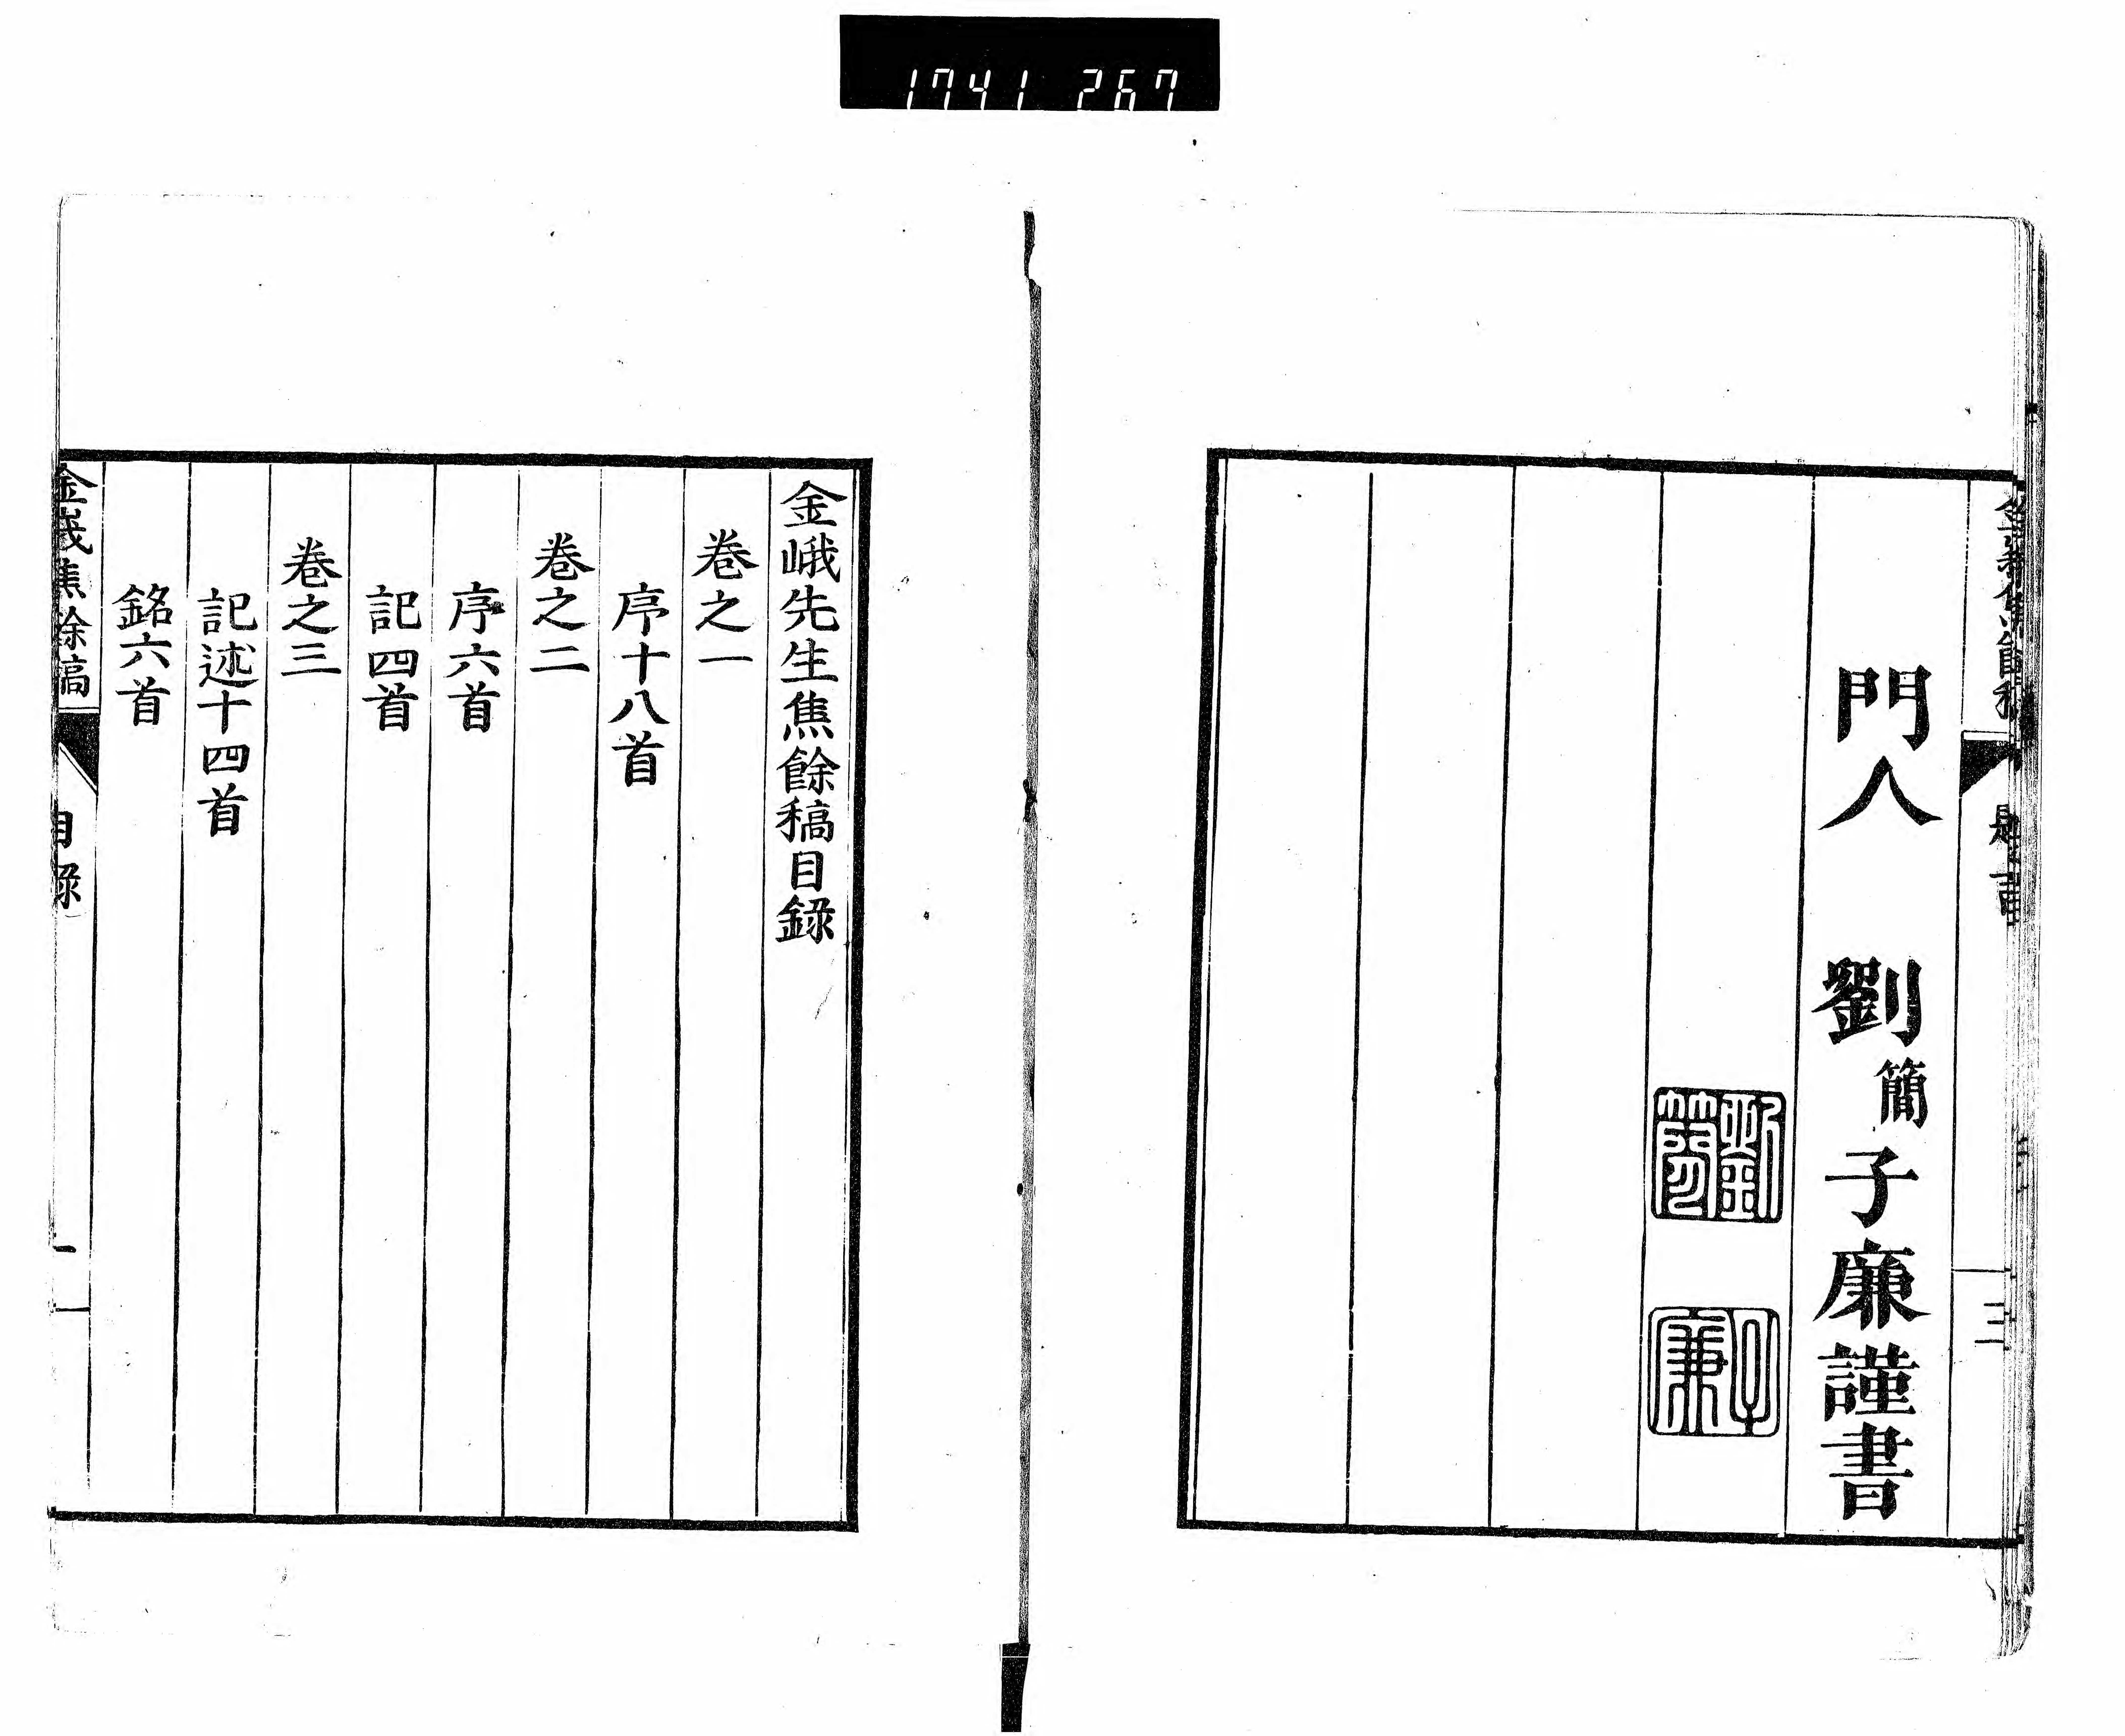 1741 267
門人　劉簡子廉謹書
劉簡
子廉
三
金峨先生焦餘稿目録
巻之一
序十八首
巻之二
序六首
記四首
巻之三
記述十四首
銘六首
金峩焦餘稿　目録　一